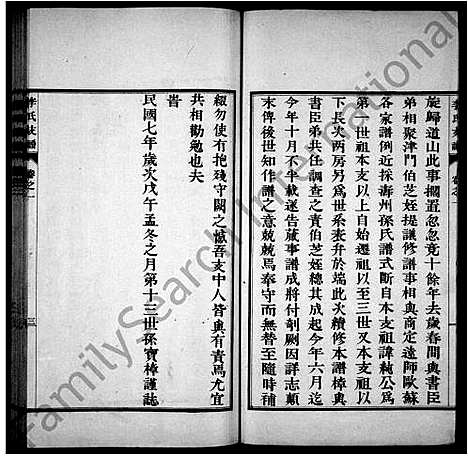 旋歸道山此事擱置忽忽竟十餘年去歲春間與書臣
弟相聚津門伯芝姪提議修譜事相與商定遠師歐蘇
各家譜例近採壽州孫氏譜式斷自本支祖諱 公爲
第一世祖本支以上自始遷祖以至三世又本支祖以
下長次兩房另爲世系表弁於端此次續修本譜樟與
書臣弟共任調查之責伯芝姪總其成起今年六月迄
今年十月不半載遂告蕆事譜成將付剞劂因詳志顛
末俾後世知作譜之意兢兢焉奉守而無替至隨時補
綴勿使有抱殘守闕之憾吾支中人皆與有責焉尤宜
共相勸勉也夫
峕
民國七年歲次戊午孟冬之月第十三世孫寶樟謹誌
李氏支譜
卷之一
三
李氏支譜
卷之一
FamilySearch International